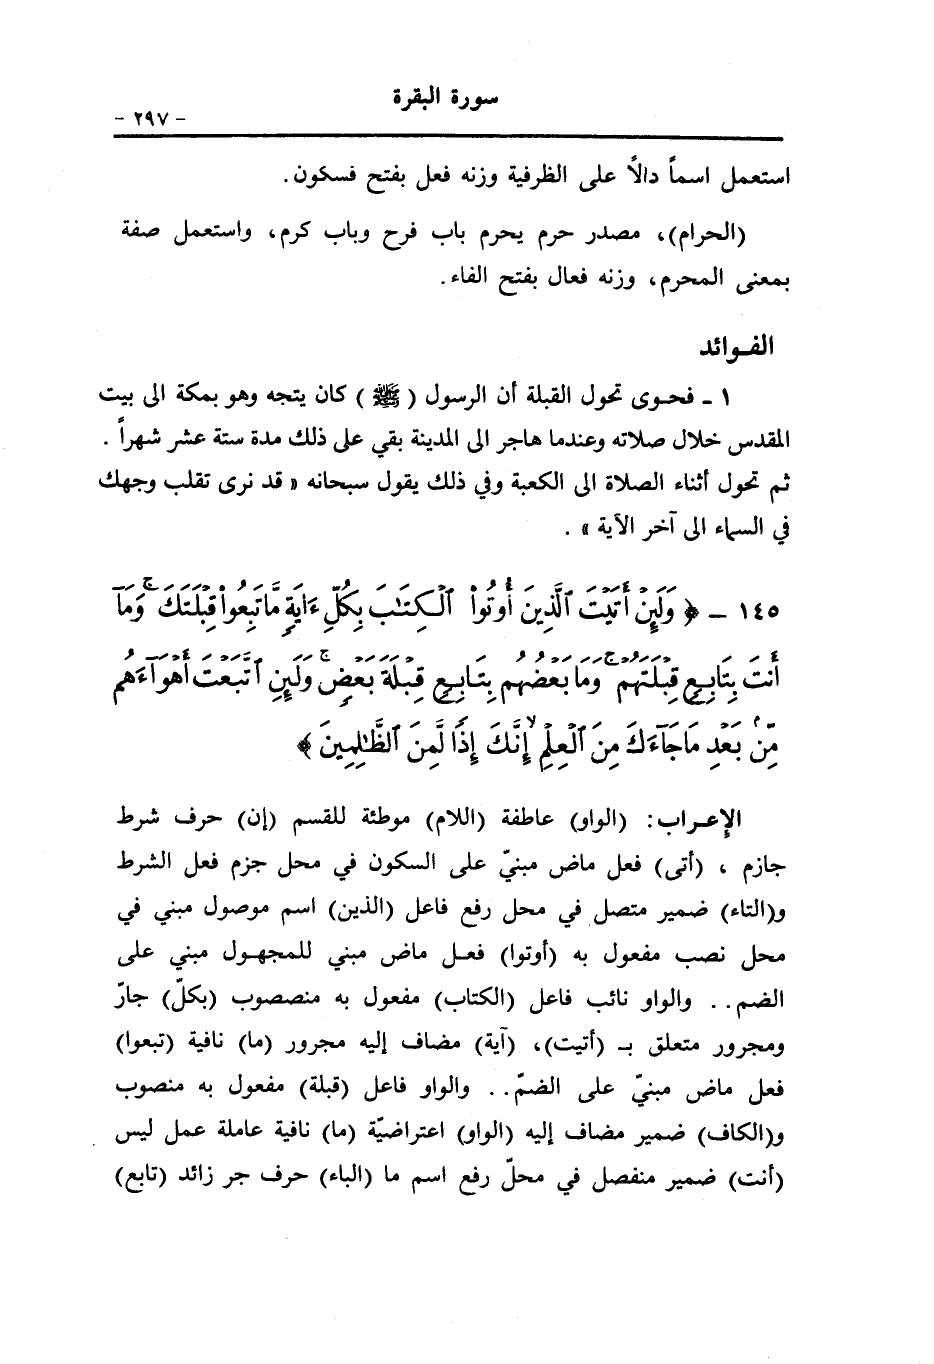 سورة البقرة
- ٢٩٧ -
استعمل اسماً دالاً على الظرفية وزنه فعل بفتح فسكون.
(الحرام)، مصدر حرم يحرم باب فرح وباب كرم، واستعمل صفة
بمعنى المحرم، وزنه فعال بفتح الفاء.
الفـوائد
١ - فحوى تحول القبلة أن الرسول (ﷺ) كان يتجه وهو بمكة الى بيت
المقدس خلال صلاته وعندما هاجر الى المدينة بقي على ذلك مدة ستة عشر شهراً .
ثم تحول أثناء الصلاة الى الكعبة وفي ذلك يقول سبحانه « قد نرى تقلب وجهك
في السماء الى آخر الآية » .
١٤٥ - ﴿ وَلَئِنْ أَتَيْتَ ٱلَّذِينَ أُوتُواْ ٱلْكِتَٰبَ بِكُلِّ ءَايَةٍ مَّا تَبِعُواْ قِبْلَتَكَ ۚ وَمَآ
أَنتَ بِتَابِعٍ قِبْلَتَهُمْ ۚ وَمَا بَعْضُهُم بِتَابِعٍ قِبْلَةَ بَعْضٍ ۚ وَلَئِنِ ٱتَّبَعْتَ أَهْوَآءَهُم
مِّنۢ بَعْدِ مَا جَآءَكَ مِنَ ٱلْعِلْمِ ۙ إِنَّكَ إِذًا لَّمِنَ ٱلظَّٰلِمِينَ ﴾
الإعـراب: (الواو) عاطفة (اللام) موطئة للقسم (إن) حرف شرط
جازم ، (أتى) فعل ماض مبنيّ على السكون في محل جزم فعل الشرط
و(التاء) ضمير متصل في محل رفع فاعل (الذين) اسم موصول مبني في
محل نصب مفعول به (أوتوا) فعـل ماض مبني للمجهـول مبني على
الضم.. والواو نائب فاعل (الكتاب) مفعول به منصصوب (بكلّ) جارّ
ومجرور متعلق بـ (أتيت)، (آية) مضاف إليه مجرور (ما) نافية (تبعوا)
فعل ماض مبنيّ على الضمّ.. والواو فاعل (قبلة) مفعول به منصوب
و(الكاف) ضمير مضاف إليه (الواو) اعتراضيّة (ما) نافية عاملة عمل ليس
(أنت) ضمير منفصل في محلّ رفع اسم ما (الباء) حرف جر زائد (تابع)